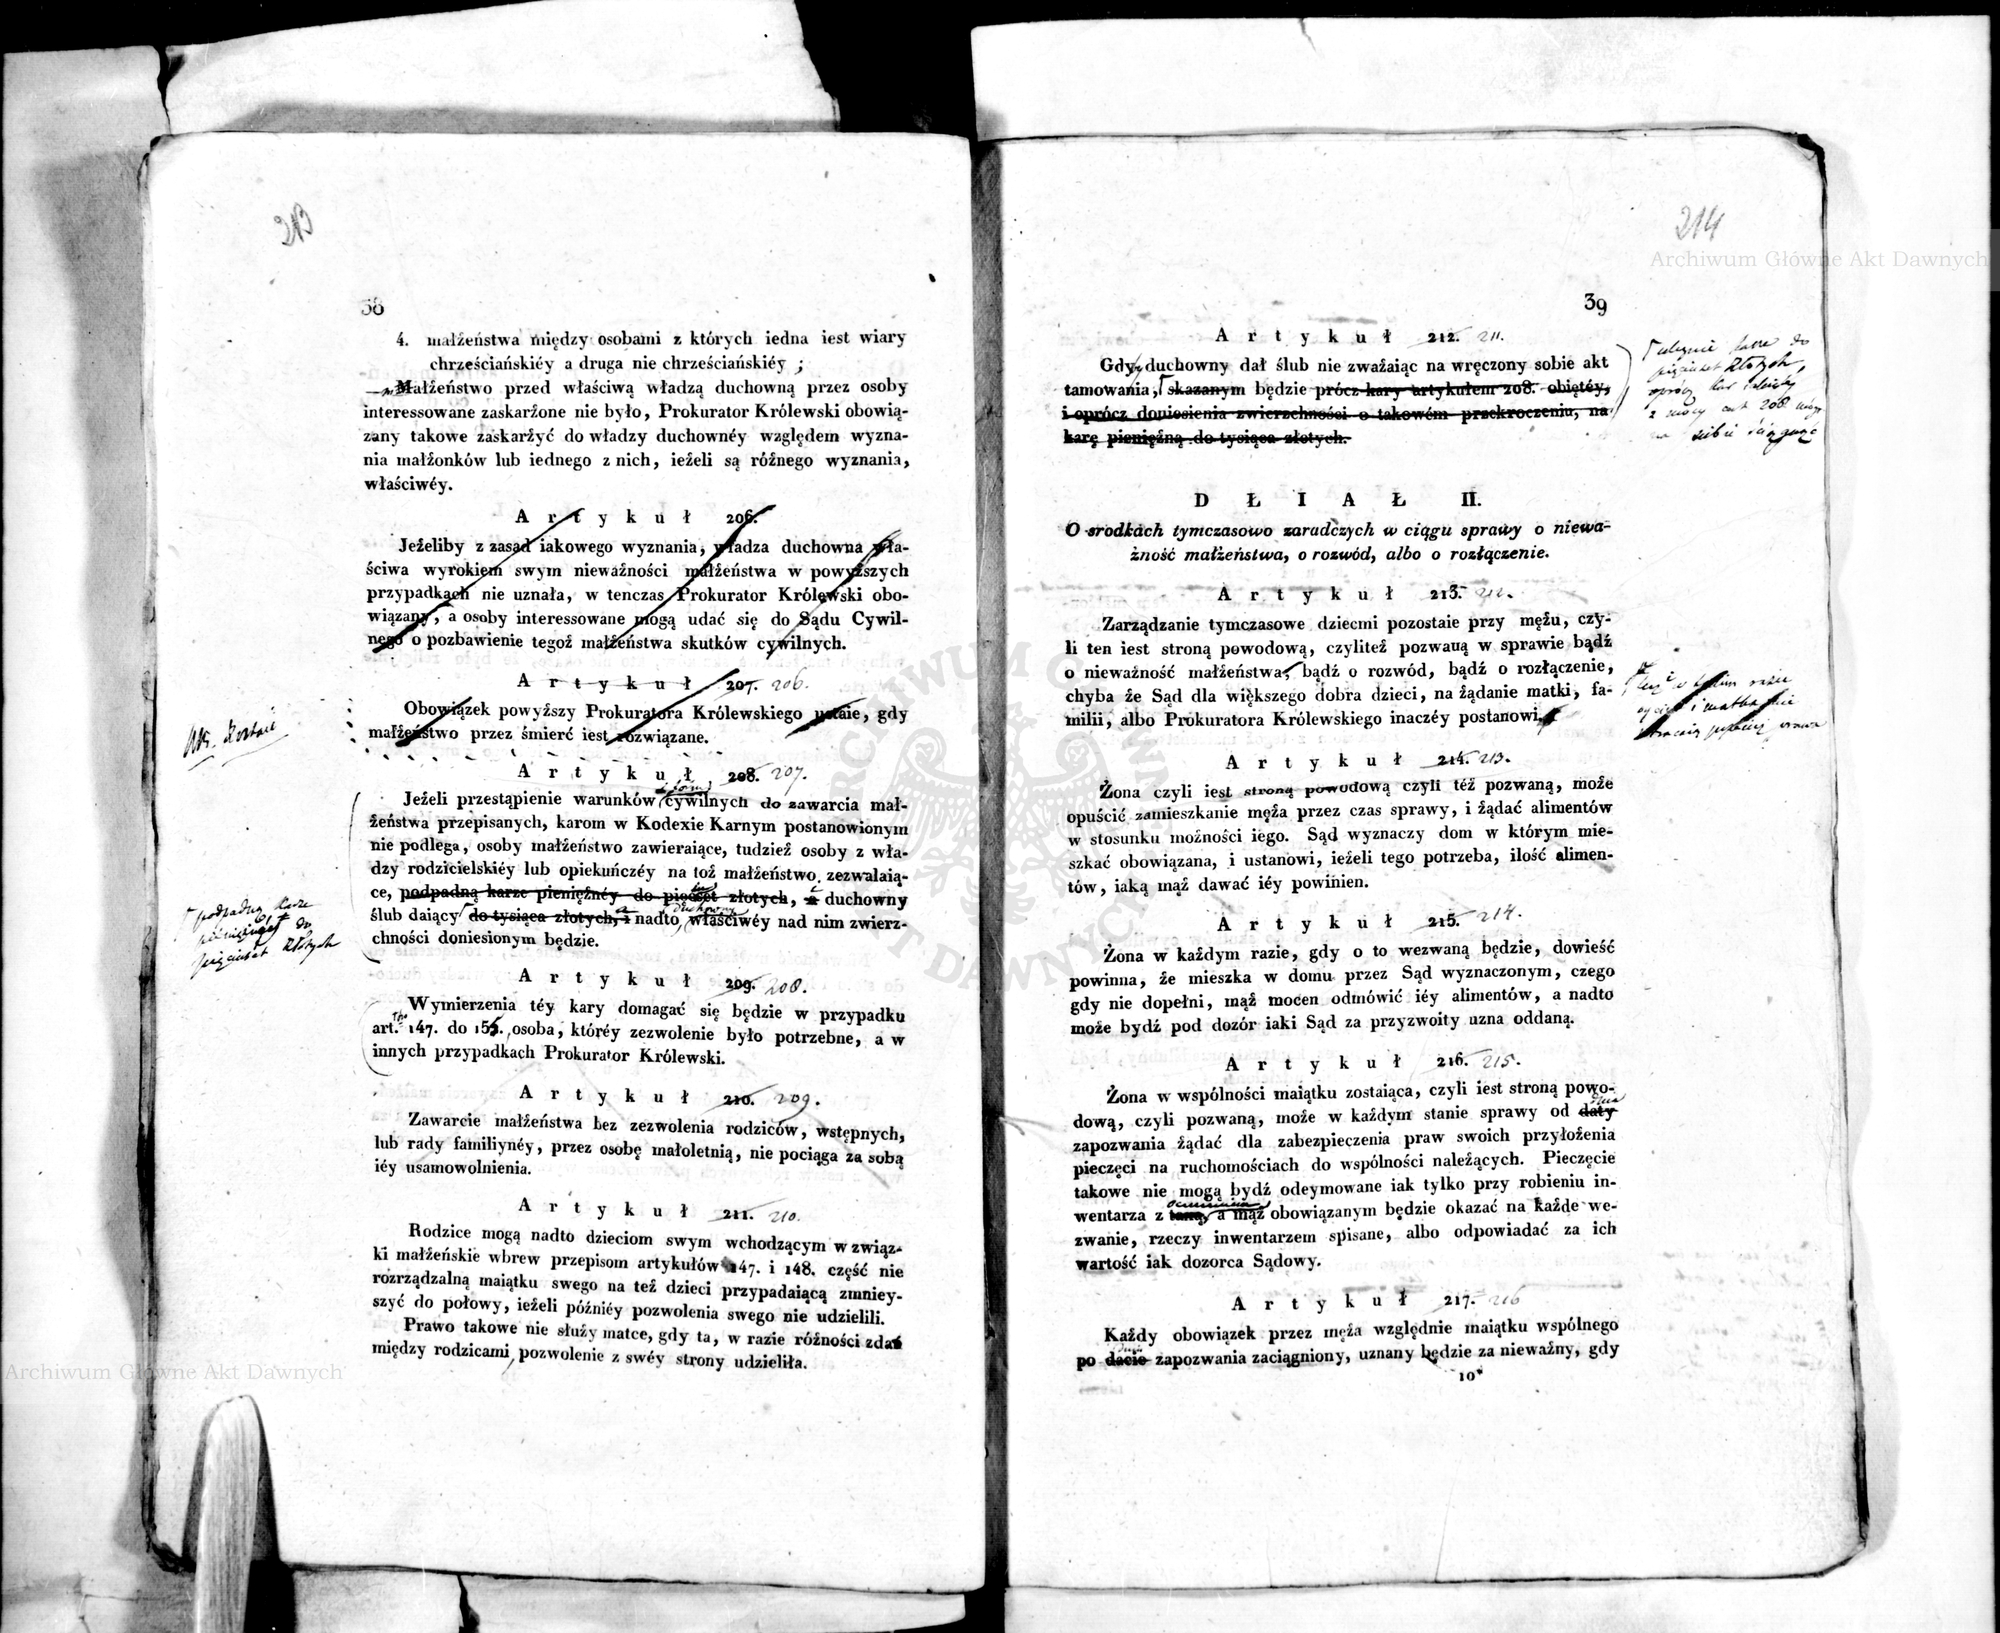 213
38
4. małżeństwa między osobami z których iedna iest wiary
chrześciańskiéy a druga nie chrześciańskiéy ;
Małżeństwo przed właściwą władzą duchowną przez osoby
interessowane zaskarżone nie było, Prokurator Królewski obowią-
zany takowe zaskarżyć do władzy duchownéy względem wyzna-
nia małżonków lub iednego z nich, ieżeli są różnego wyznania,
właściwéy.
Artykuł 206.
Jeżeliby z zasad iakowego wyznania, władza duchowna wła-
ściwa wyrokiem swym nieważności małżeństwa w powyższych
przypadkach nie uznała, w tenczas Prokurator Królewski obo-
wiązany, a osoby interessowane mogą udać się do Sądu Cywil-
nego o pozbawienie tegoż małżeństwa skutków cywilnych.
Artykuł 207. 206.
Obowiązek powyższy Prokuratora Królewskiego ustaie, gdy
małżeństwo przez śmierć iest rozwiązane.
Artykuł 208. 207.
Jeżeli przestąpienie warunków cywilnych do zawarcia mał-
żeństwa przepisanych, karom w Kodexie Karnym postanowionym
nie podlega, osoby małżeństwo zawieraiące, tudzież osoby z wła-
dzy rodzicielskiéy lub opiekuńczéy na toż małżeństwo zezwalaią-
ce, podpadną karze pieniężnéy do pięciset złotych, a duchowny
ślub daiący do tysiąca złotych, i nadto, duchowny właściwéy nad nim zwierz-
chności doniesionym będzie.
podpadną karze
pieniężnéj do
pięciuset złotych
Artykuł 209. 208.
Wymierzenia téy kary domagać się będzie w przypadku
art. 147. do 155. osoba, któréy zezwolenie było potrzebne, a w
innych przypadkach Prokurator Królewski.
Artykuł 210. 209.
Zawarcie małżeństwa bez zezwolenia rodziców, wstępnych,
lub rady familiynéy, przez osobę małoletnią, nie pociąga za sobą
iéy usamowolnienia.
Artykuł 211. 210.
Rodzice mogą nadto dzieciom swym wchodzącym w związ-
ki małżeńskie wbrew przepisom artykułów 147. i 148. część nie
rozrządzalną maiątku swego na też dzieci przypadaiącą zmniey-
szyć do połowy, ieżeli późniéy pozwolenia swego nie udzielili.
Prawo takowe nie służy matce, gdy ta, w razie różności zdań
między rodzicami, pozwolenie z swéy strony udzieliła.
Archiwum Główne Akt Dawnych
214
Archiwum Główne Akt Dawnych
39
Artykuł 212. 211.
Gdy duchowny dał ślub nie zważaiąc na wręczony sobie akt
tamowania, skazanym będzie prócz kary artykułem 208. obiętéy,
i oprócz doniesienia zwierzchności o takowém przekroczeniu, na
karę pieniężną do tysiąca złotych.
ulegnie karze do
pięciuset złotych,
oprócz kar
z mocy art. 208
siebie
DŁIAŁ II.
O srodkach tymczasowo zaradczych w ciągu sprawy o niewa-
żność małżeństwa, o rozwód, albo o rozłączenie.
Artykuł 213. 212.
Zarządzanie tymczasowe dziecmi pozostaie przy mężu, czy-
li ten iest stroną powodową, czyliteż pozwaną w sprawie bądź
o nieważność małżeństwa, bądź o rozwód, bądź o rozłączenie,
chyba że Sąd dla większego dobra dzieci, na żądanie matki, fa-
milii, albo Prokuratora Królewskiego inaczéy postanowi,
i matka
Artykuł 214. 213.
Żona czyli iest stroną powodową czyli téż pozwaną, może
opuścić zamieszkanie męża przez czas sprawy, i żądać alimentów
w stosunku możności iego. Sąd wyznaczy dom w którym mie-
szkać obowiązana, i ustanowi, ieżeli tego potrzeba, ilość alimen-
tów, iaką mąż dawać iéy powinien.
Artykuł 215. 214.
Żona w każdym razie, gdy o to wezwaną będzie, dowieść
powinna, że mieszka w domu przez Sąd wyznaczonym, czego
gdy nie dopełni, mąż mocen odmówić iéy alimentów, a nadto
może bydź pod dozór iaki Sąd za przyzwoity uzna oddaną.
Artykuł 216. 215.
Żona w wspólności maiątku zostaiąca, czyli iest stroną powo-
dową, czyli pozwaną, może w każdym stanie sprawy od daty dnia
zapozwania żądać dla zabezpieczenia praw swoich przyłożenia
pieczęci na ruchomościach do wspólności należących. Pieczęcie
takowe nie mogą bydź odeymowane iak tylko przy robieniu in-
wentarza z taxą, a mąż obowiązanym będzie okazać na każde we-
zwanie, rzeczy inwentarzem spisane, albo odpowiadać za ich
wartość iak dozorca Sądowy.
Artykuł 217. 216
Każdy obowiązek przez męża względnie maiątku wspólnego
po dacie zapozwania zaciągniony, uznany będzie za nieważny, gdy
10*